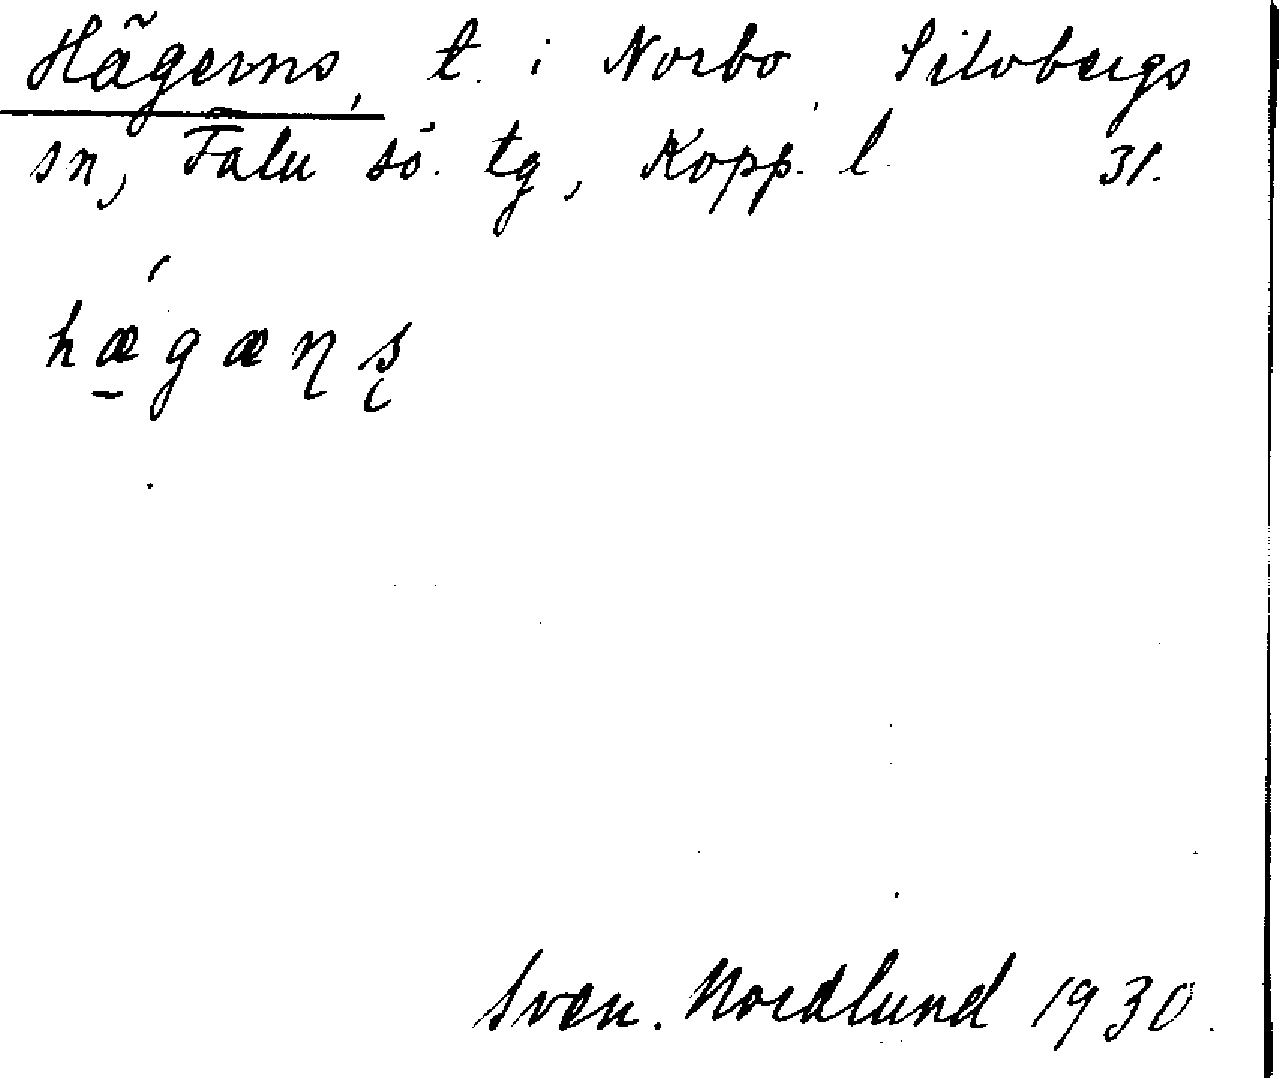 Hägerns, t. i Norbo, Silvbergs
sn, Falu sö. tg, Kopp. l. 31.
hǽ̱gæɳʂ
Sven. Nordlund 1930.